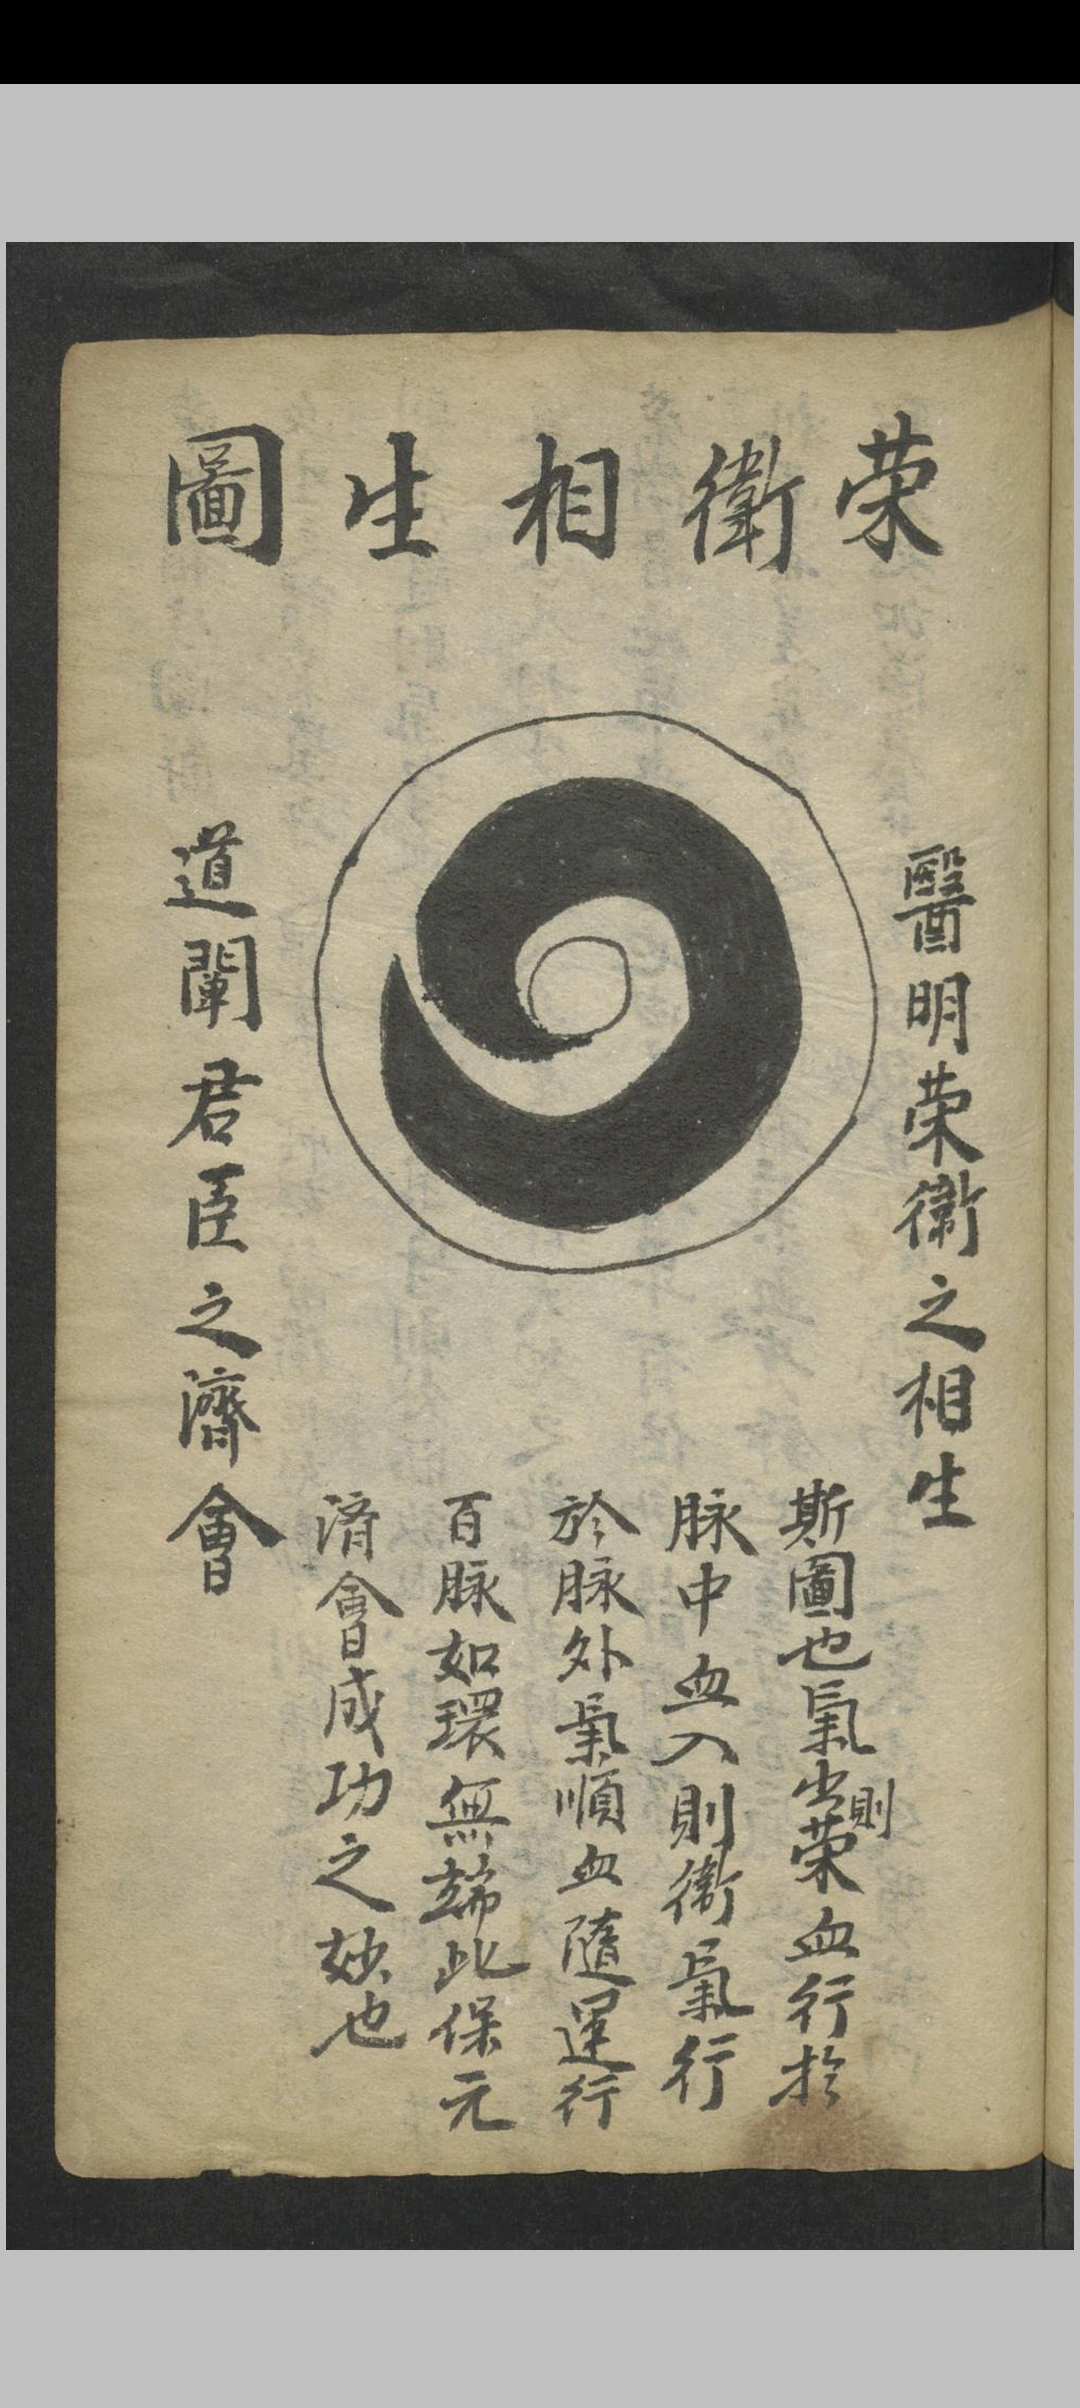 榮衛相生圖
醫明榮衛之相生
斯圖也氣出則榮血行於
脉中血入則衛氣行
於脉外氣順血隨運行
百脉如環無端此保元
濟會成功之妙也
道闡君臣之濟會